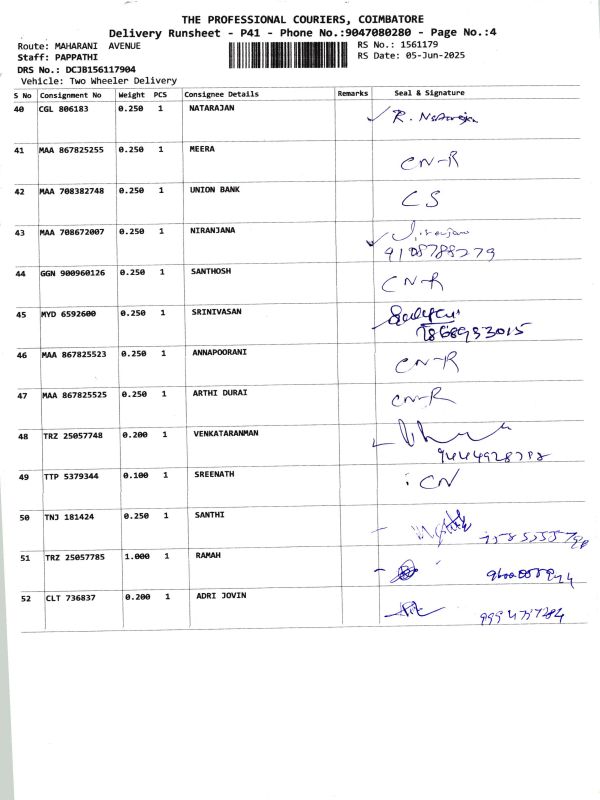 THE PROFESSIONAL COURIERS, COIMBATORE
Delivery Runsheet - P41 - Phone No.:9047080280 - Page No.:4
Route: MAHARANI AVENUE RS No.: 1561179
Staff: PAPPATHI RS Date: 05-Jun-2025
DRS No.: DCJB156117904
Vehicle: Two Wheeler Delivery
S No Consignment No Weight PCS Consignee Details Remarks Seal & Signature
40 CGL 806183 0.250 1 NATARAJAN R. Natarajan
41 MAA 867825255 0.250 1 MEERA CN-R
42 MAA 708382748 0.250 1 UNION BANK CS
43 MAA 708672007 0.250 1 NIRANJANA
9108788279
44 GGN 900960126 0.250 1 SANTHOSH CN-R
45 MYD 6592600 0.250 1 SRINIVASAN
46 MAA 867825523 0.250 1 ANNAPOORANI CN-R
47 MAA 867825525 0.250 1 ARTHI DURAI CN-R
48 TRZ 25057748 0.200 1 VENKATARANMAN
49 TTP 5379344 0.100 1 SREENATH CN
50 TNJ 181424 0.250 1 SANTHI
51 TRZ 25057785 1.000 1 RAMAH
52 CLT 736837 0.200 1 ADRI JOVIN